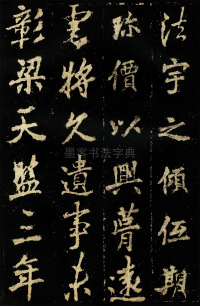 法宇之傾伍期
珎價以興菁遠
雲將久遺事未
彰梁天監三年
墨客书法字典